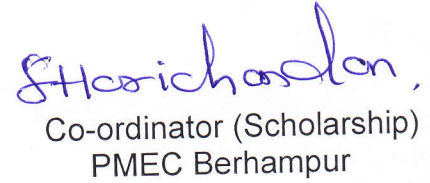 SHarichandan,
Co-ordinator (Scholarship)
PMEC Berhampur